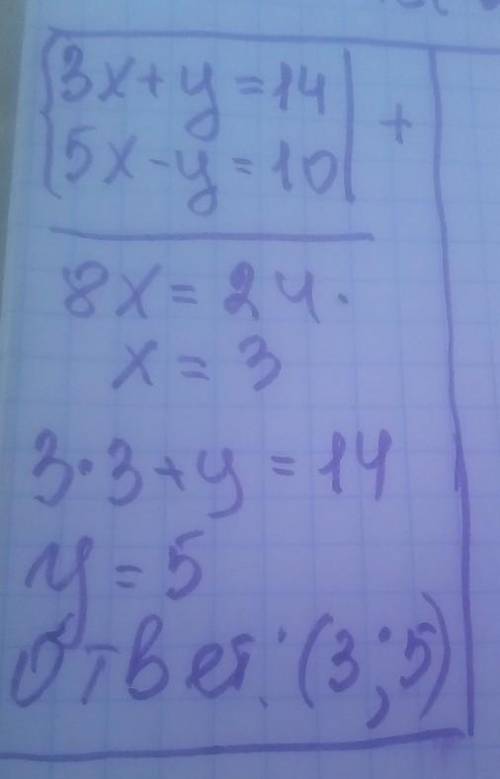 {3x+y=14|
{5x-y=10| +
8x=24.
x=3
3·3+y=14
y=5
Ответ: (3;5)